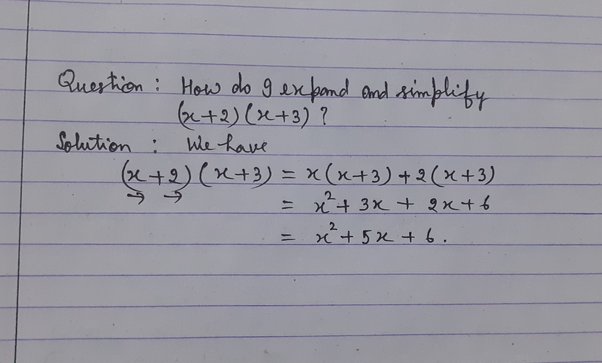 Question : How do I expand and simplify
(x+2)(x+3) ?
Solution : We have
(x+2)(x+3) = x(x+3)+2(x+3)
→ →
= x²+ 3x + 2x+6
= x²+ 5x + 6.